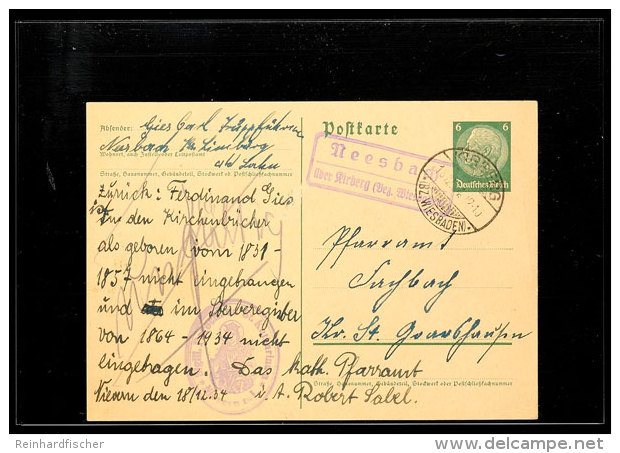 Absender: Gies Carl Truppführer
Neesbach Kr. Limburg
a/d Lahn
Wohnort, auch Zustell- oder Leitpostamt
Straße, Hausnummer, Gebäudeteil, Stockwerk od Postschließfachnummer
Postkarte
6 6
Deutsches Reich
Neesbach
über Kirberg (Bez. Wies
KIRBERG
(BZ. WIESBADEN)
Zurück: Ferdinand Gies
in den Kirchenbücher
als geboren (vom 1831 -
1857 nicht eingetragen
und im Sterberegister
von 1864 - 1934 nicht
eingetragen. Das kath. Pfarramt
den 18/12.34 i. A. Robert Sabel.
Pfarramt
Fachbach
Kr. St. Goarshausen
Straße, Hausnummer, Gebäudeteil, Stockwerk oder Postschließfachnummer
Reinhardfischer
delcampe.net